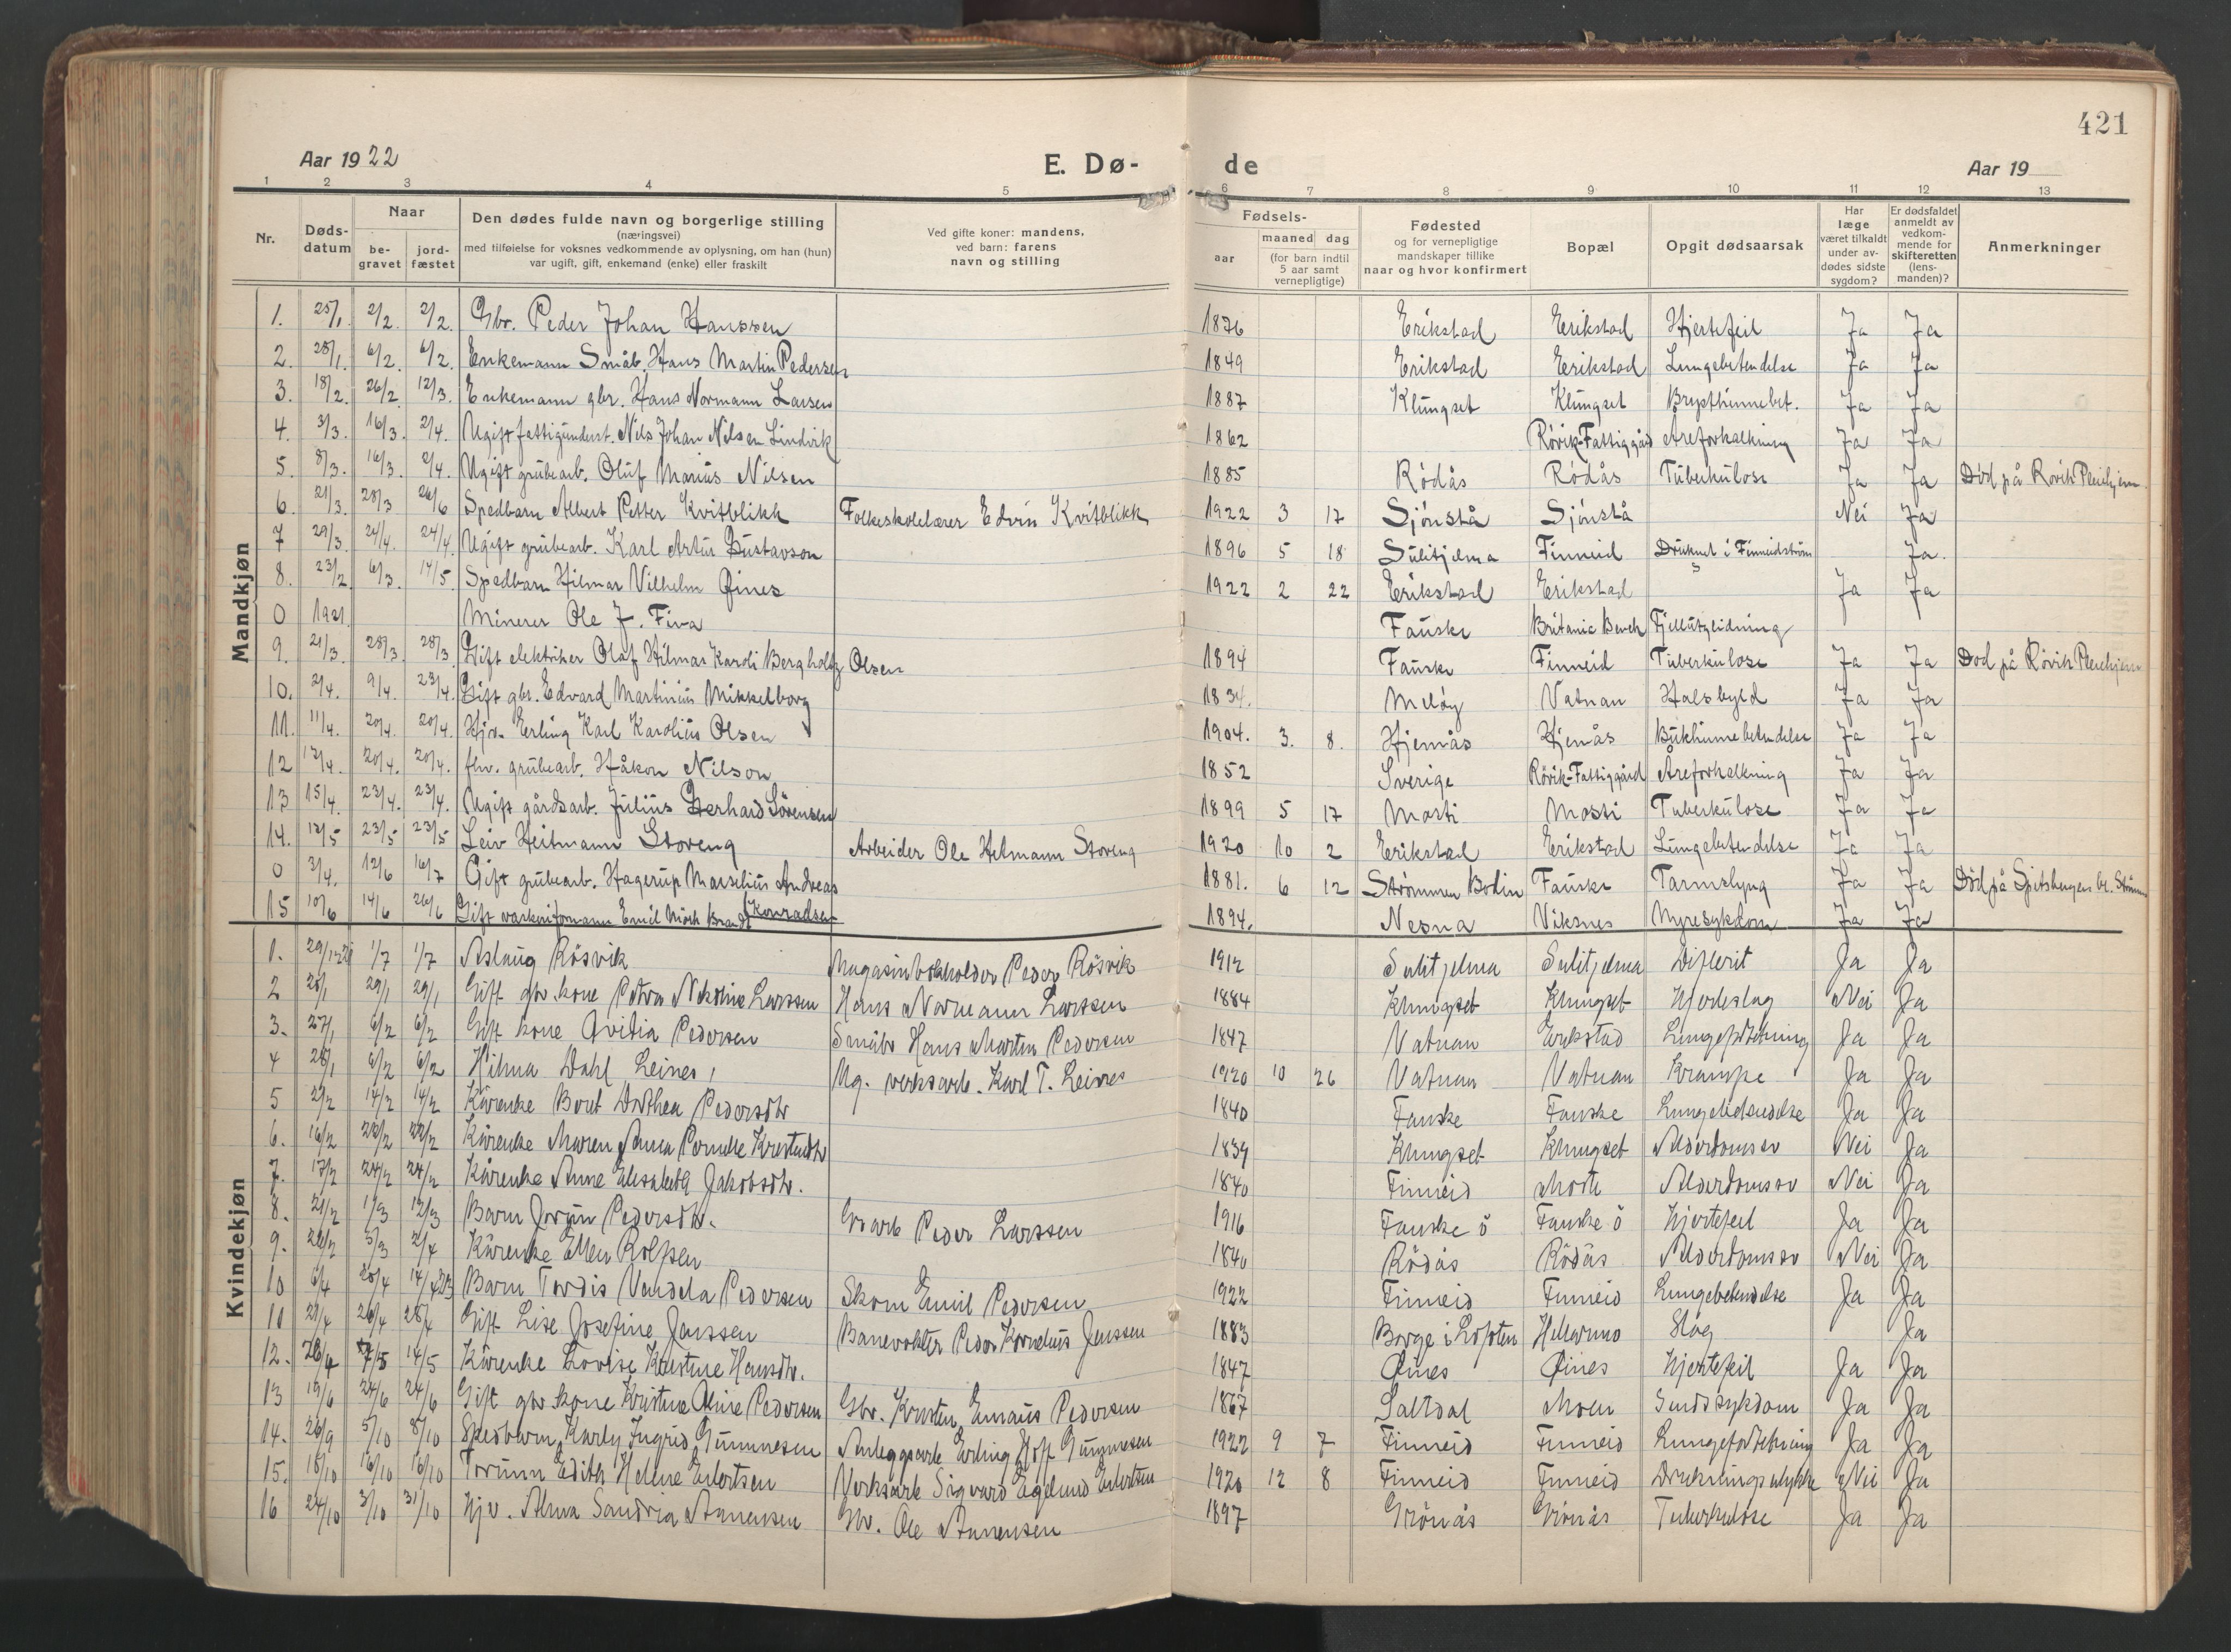 421
Aar 1922 E. Dø- de Aar 19
1 2 3 4 5 6 7 8 9 10 11 12 13
Nr.
Døds-
datum
Naar
be-
gravet
jord-
fæstet
Den dødes fulde navn og borgerlige stilling
(næringsvei)
med tilføielse for voksnes vedkommende av oplysning, om han (hun)
var ugift, gift, enkemand (enke) eller fraskilt
Ved gifte koner: mandens,
ved barn: farens
navn og stilling
Fødsels-
aar
maaned dag
(for barn indtil
5 aar samt
vernepligtige)
Fødested
og for vernepligtige
mandskaper tillike
naar og hvor konfirmert
Bopæl
Opgit dødsaarsak
Har
læge
været tilkaldt
under av-
dødes sidste
sygdom?
Er dødsfaldet
anmeldt av
vedkom-
mende for
skifteretten
(lens-
manden)?
Anmerkninger
Mandkjøn
1. 25/1. 2/2. 2/2. Gbr. Peder Johan Hanssen 1876 Erikstad Erikstad Hjertefeil Ja Ja
2. 28/1. 6/2. 6/2. Enkemann Småb. Hans Martin Pedersen 1849 Erikstad Erikstad Lungebetendelse Ja Ja
3. 18/2. 26/2. 12/3. Enkemann gbr. Hans Normann Larsen 1887 Klungset Klungset Brysthinnebet. Ja Ja
4. 3/3. 16/3. 2/4. Ugift fattigunderst. Nils Johan Nilsen Lindvik 1862 Rövik-Fattiggård Åreforkalkning Ja Ja
5. 8/3. 16/3. 2/4. Ugift grubearb. Oluf Marius Nilsen 1885 Rödås Rödås Tuberkulose Ja Ja Död på Rövik Pleiehjem.
6. 21/3. 28/3 26/6 Spedbarn Albert Petter Kvitblikk Folkeskolelærer Edvin Kvitblikk 1922 3 17 Sjönstå Sjönstå Nei Ja
7 29/3. 24/4. 24/4. Ugift grubearb. Karl Artur Gustavson 1896 5 18 Sulitjelma Finneid Druknet i Finneidström Ja.
8. 23/2. 6/3. 14/5 Spedbarn Hilmar Vilhelm Öines 1922 2 22 Erikstad Erikstad Ja Ja
0 1921. Minerer Ole J. Fiva Fauske Britanic Fjellutglidning
9. 21/3. 28/3. 28/3. Gift elektriker Olaf Hilmar Karoli Bergholtz Olsen 1894 Fauske Finneid Tuberkulose Ja Ja Död på Rövik Pleiehjem
10. 2/4. 9/4. 23/4. Gift gbr. Edvard Martinius Mikkelborg 1834. Melöy Vatnan Halsbyld Ja Ja
11. 11/4. 20/4. 20/4. Hjv. Erling Karl Karolius Olsen 1904. 3. 8. Hjemås Hjemås Bukhinnebetendelse Ja Ja
12 12/4. 20/4. 20/4. fhv. grubearb. Håkon Nilson 1852 Sverige Rövik-Fattiggård Åreforkalkning Ja Ja
13 15/4. 23/4. 23/4. Ugift gårdsarb. Julius Gerhard Sörensen 1899 5 17 Mosti Mosti Tuberkulose Ja Ja
14. 12/5 23/5 23/5 Leiv Heitmann Storeng Arbeider Ole Helmann Storeng 1920 10 2 Erikstad Erikstad Lungebetendelse Ja Ja
0 3/4. 12/6 16/7 Gift grubearb. Hagerup Marselius Andreas Konradsen 1881. 6 12 Strömmen Bodin Fauske Tarmslyng Ja Ja Död på Spitsbergen
15 10/6 14/6 26/6 Gift Emil Mörk Brandt 1894. Nesna Viksnes Nyresykdom Ja Ja
Kvindekjøn
1. 29/12 21 1/7 1/7 Aslaug Rösvik Magasinholder Peder Rösvik 1912 Sulitjelma Sulitjelma Difterit Ja Ja
2 20/1 29/1 29/1 Gift gbr. kone Petra Nikoline Larssen Hans Normann Larssen 1884 Klungset Klungset Hjerteslag Nei Ja
3. 27/1 6/2 6/2 Gift kone Ovidia Pedersen Småbr Hans Marten Pedersen 1847 Vatnan Erikstad Ja Ja
4 28/1 6/2 6/2 Hilma Dahl Leines, Ug. verksarb. Karl T. Leines 1920 10 26 Vatnan Vatnan Krampe Ja Ja
5 2/2 14/2 14/2 Kårenke Beret Dorthea Pedersdtr 1840 Fauske Fauske Lungebetendelse Ja Ja
6. 16/2 22/2 22/2 Kårenke Maren Anna Pernelle Kristensdtr 1839 Klungset Klungset Alderdomssv Nei Ja
7. 17/2 24/2 24/2 Kårenke Anne Elisabeth Jakobsdtr. 1840 Finneid Moste Alderdomssv Nei Ja
8. 21/2 1/3 12/3 Barn Jorun Pedersdtr. Grarb Peder Larssen 1916 Fauske ö Fauske ö Hjertefeil Ja Ja
9. 26/2 5/3 2/4 Kårenke Ellen Rolfsen 1840 Rödås Rödås Alderdomssv Nei Ja
10 6/4 20/4 14/4 23 Barn Tordis Vendela Pedersen Skom Emil Pedersen 1922 Finneid Finneid Lungebetendelse Ja Ja
11 21/4 26/4 28/4 Gift Lise Josefine Jenssen Banevokter Peder Kornelius Jenssen 1883 Borge i Lofoten Hellarmo Slag Ja
12. 26/4 7/5 14/5 Kårenke Lovise Kristine Hansdtr. 1847 Öines Öines Hjertefeil Ja Ja
13 19/6 24/6 24/6 Gift gbr. kone Kristine Oline Pedersen Gbr. Kristen Emaus Pedersen 1867 Saltdal Moen Sindssykdom Ja Ja
14. 26/9 5/10 8/10 Spedbarn Karly Ingrid Gunnesen Anleggsarb Erling Hoff Gunnesen 1922 9 7 Finneid Finneid Ja Ja
15. 10/10 16/10 16/10 Torunn Edith Helene Evertsen Verksarb Sigvard Egelund Evertsen 1920 12 8 Finneid Finneid Drukningsulykke Nei Ja
16 24/10 3/10 31/10 Hjv. Alma Sandria Annensen Gbr. Ole Annensen 1897 Grönås Grönås Tuberkulose Ja Ja